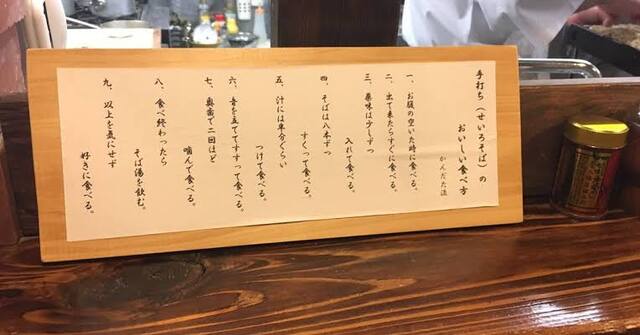 手打ち(せいろそば)の
おいしい食べ方
かんだた流
一、お腹の空いた時に食べる。
二、出て来たらすぐに食べる。
三、薬味は少しずつ
入れて食べる。
四、そばは八本ずつ
すくって食べる。
五、汁には半分ぐらい
つけて食べる。
六、音を立ててすすって食べる。
七、奥歯で二回ほど
噛んで食べる。
八、食べ終わったら
そば湯を飲む。
九、以上を気にせず
好きに食べる。